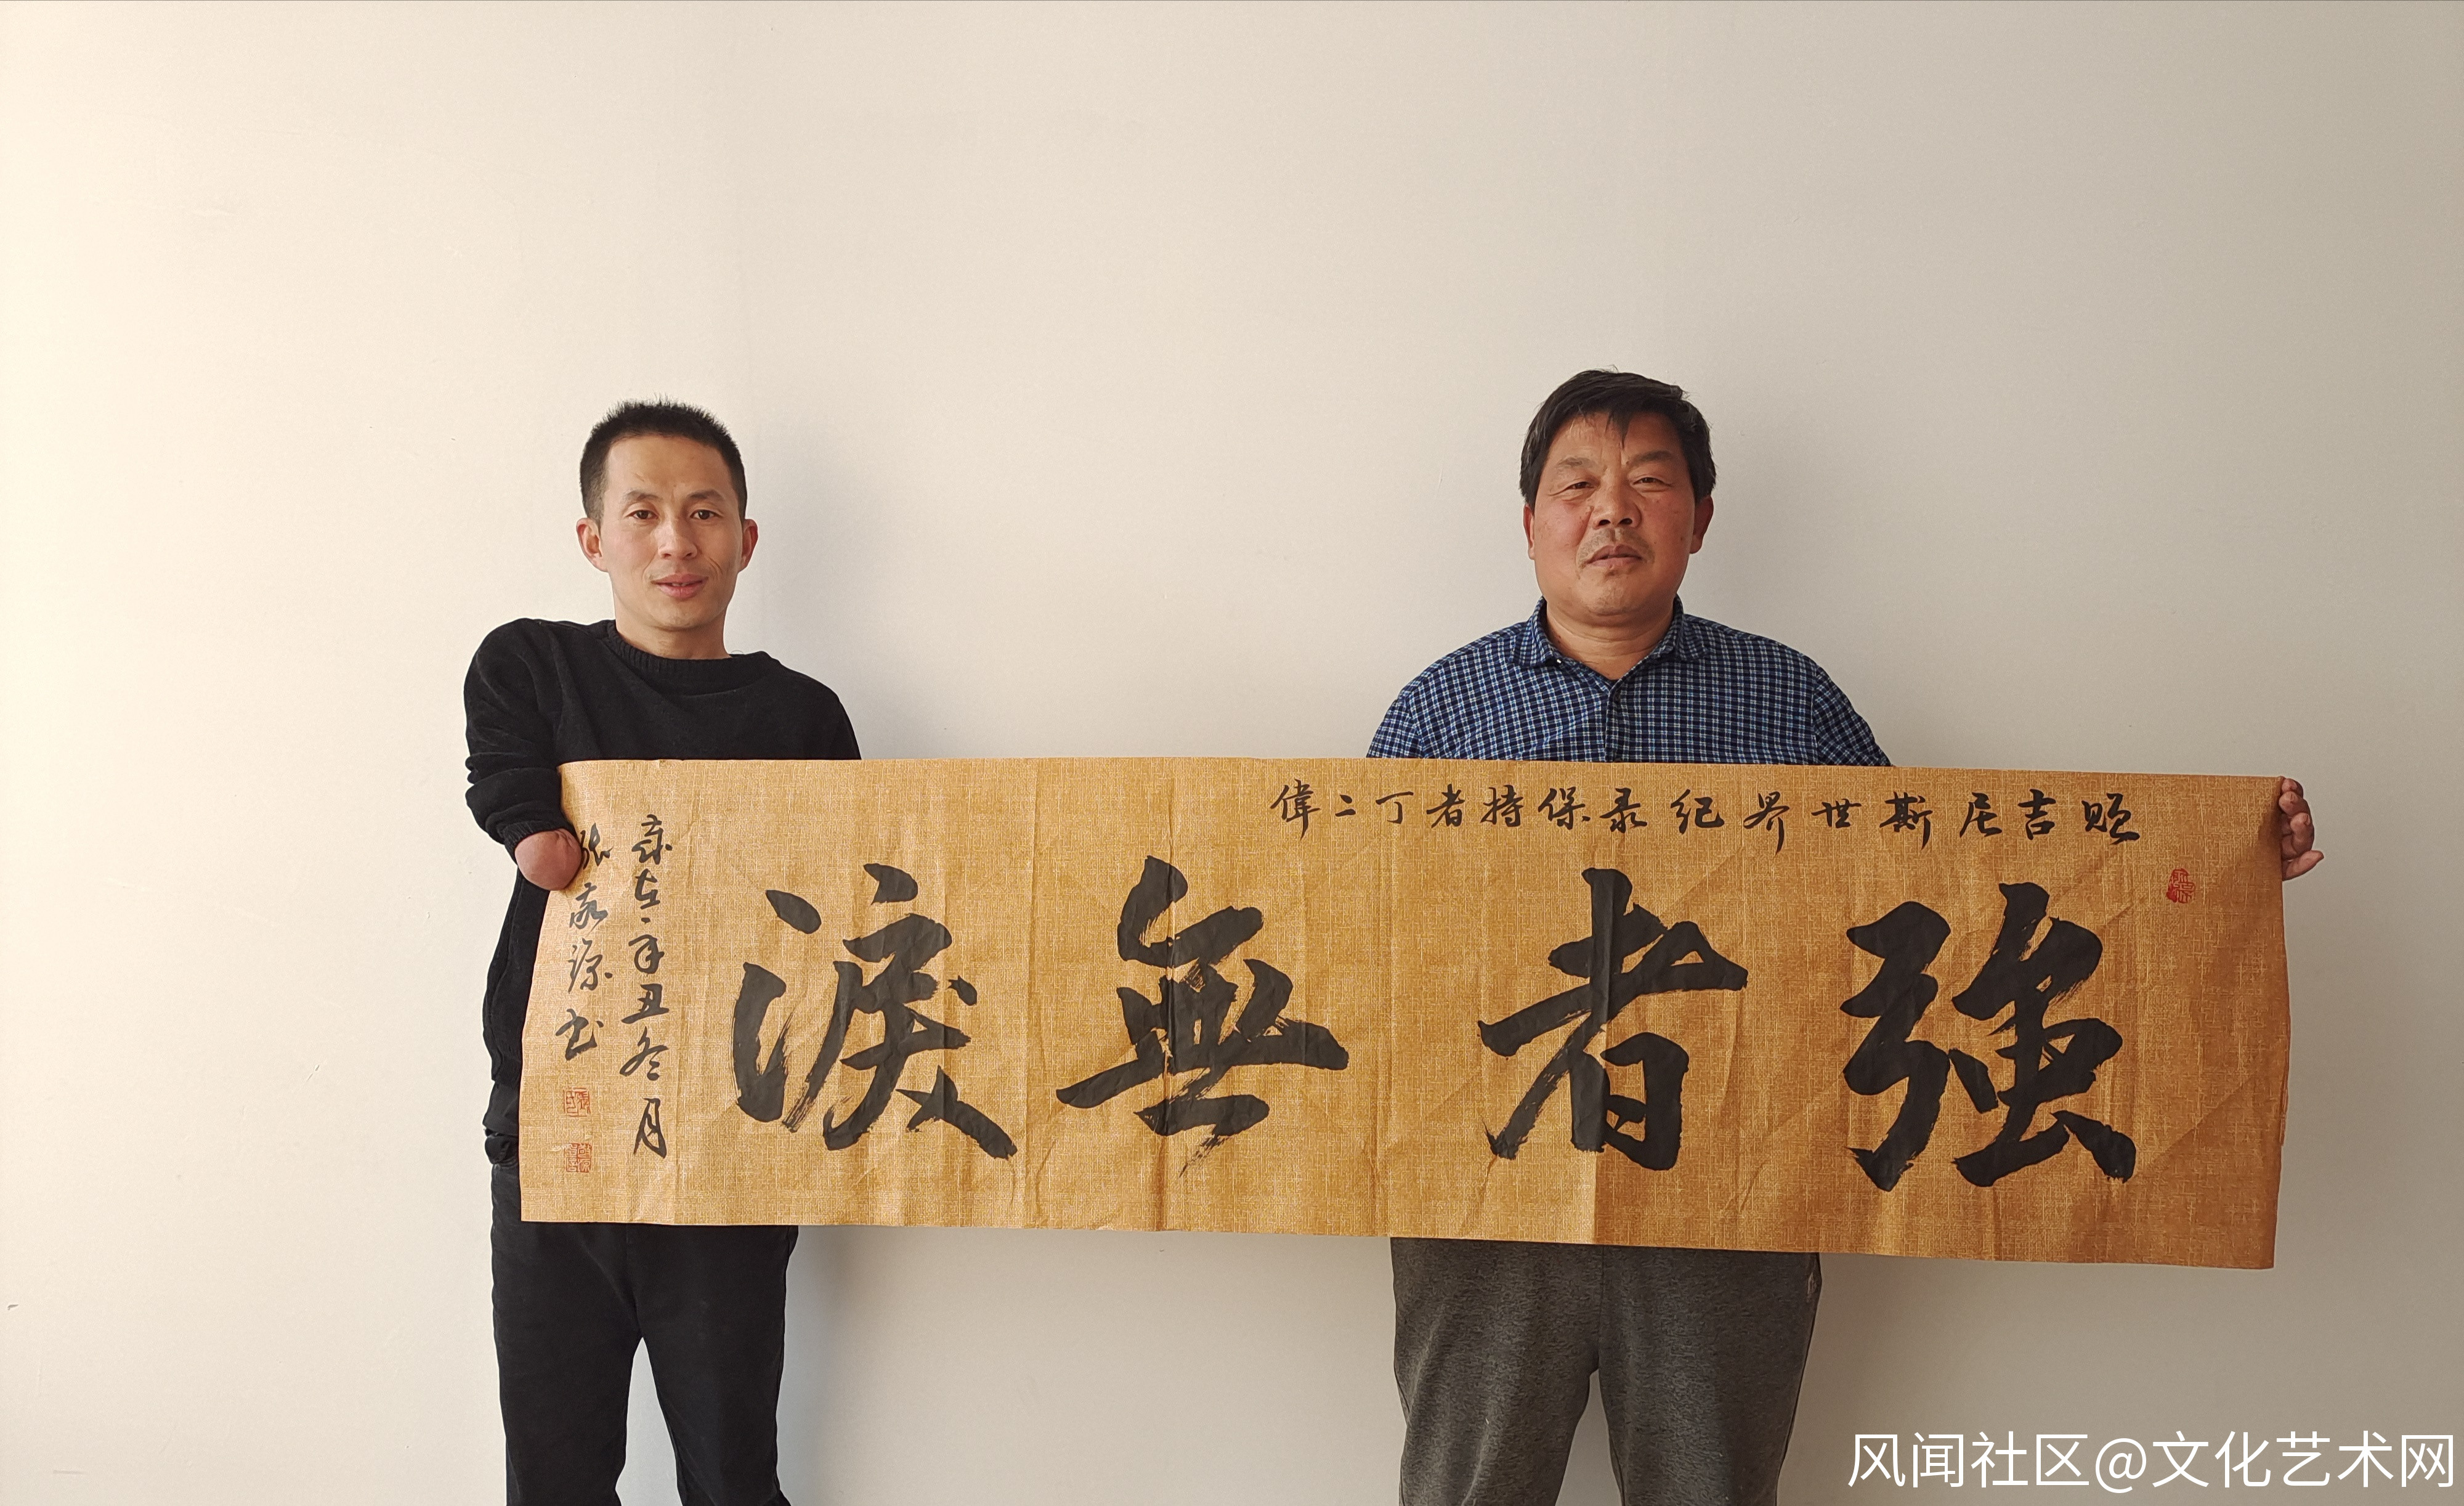 贈吉尼斯世界纪录保持者丁二偉
強者無淚
辛丑冬月
张家源书
风闻社区@文化艺术网